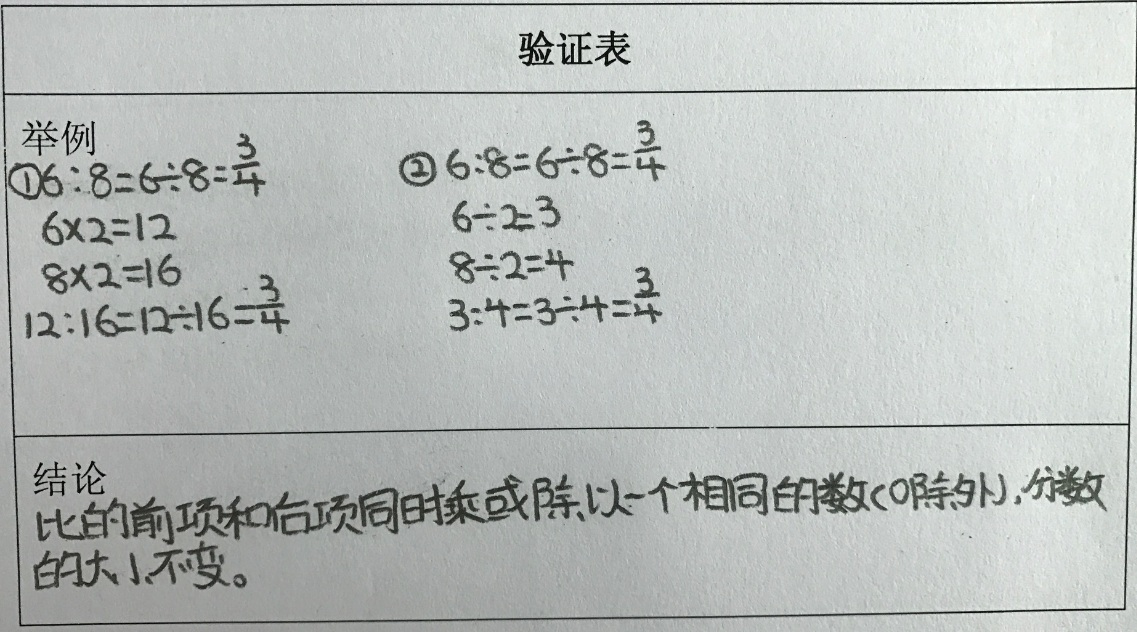 验证表
举例
①6:8=6÷8=3/4
6×2=12
8×2=16
12:16=12÷16=3/4
②6:8=6÷8=3/4
6÷2=3
8÷2=4
3:4=3÷4=3/4
结论
比的前项和后项同时乘或除以一个相同的数(0除外),分数
的大小不变。